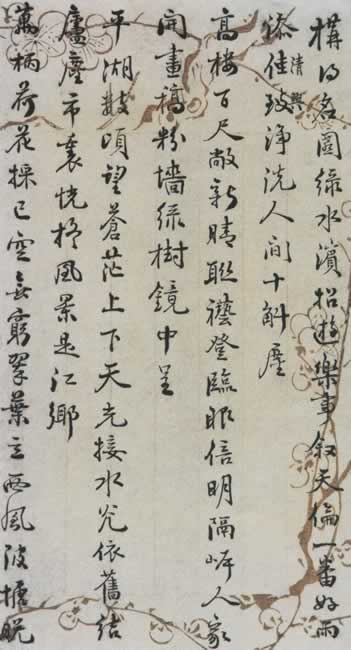 構得名園綠水濱招遊樂事敘天倫一番好雨
添佳致淨洗人間十斛塵
清興
高樓百尺敞新晴聯襼登臨眼倍明隔岸人家
開畫稿粉墻綠樹鏡中呈
平湖數頃望蒼茫上下天光接水光依舊結
廬塵市裏恍移風景是江鄉
萬柄荷花採已空無窮翠葉立西風陂塘脫